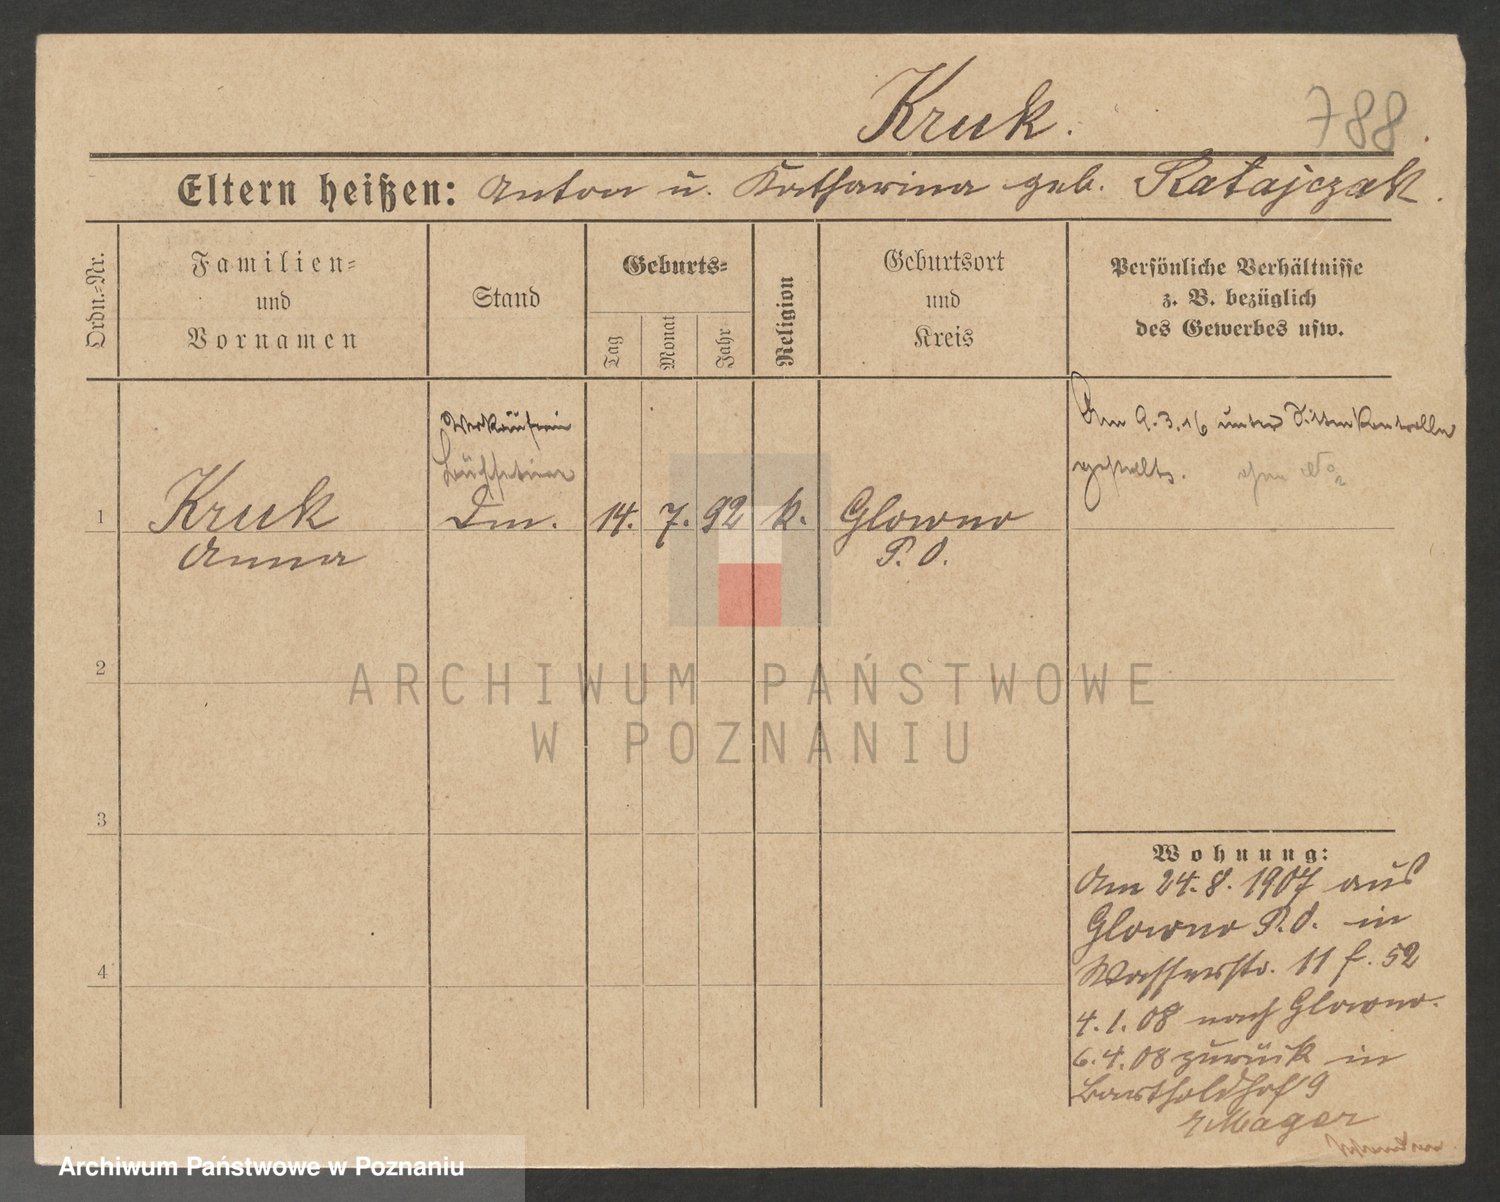 Kruk.
788
Eltern heißen: Anton u. Katharina geb. Ratajczak.
Ordn.-Nr.
Familien-
und
Vornamen
Stand
Geburts-
Tag
Monat
Jahr
Religion
Geburtsort
und
Kreis
Persönliche Verhältnisse
z. B. bezüglich
des Gewerbes usw.
Verkäuferin
Am 9.3.16 unter Sittenkontrolle
gestellt.
1
Kruk
Dm.
14.
7.
92
k.
Glowno
Anna
P. O.
2
ARCHIWUM PAŃSTWOWE
W POZNANIU
3
4
Wohnung:
Am 24.8.1907 aus
Glowno P.O. in
Wasserstr. 11 f. 52
4.1.08 nach Glowno.
6.4.08 zurück in
Bartholdshof 9
Mager
Archiwum Państwowe w Poznaniu